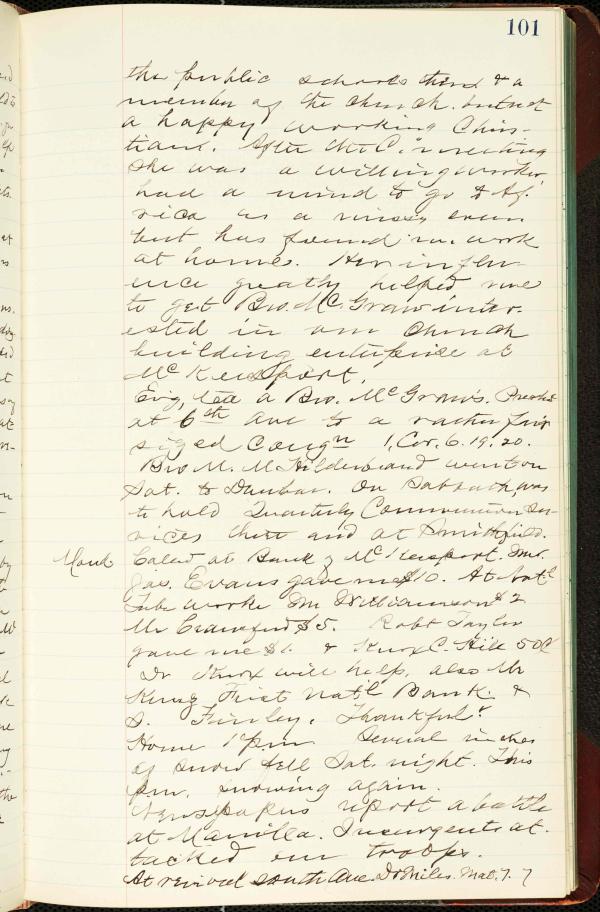 101
the public schools there & a
member of the church. but not
a happy working Chris-
tian. After the C. meeting
she was a willing worker
had a mind to go to Af-
rica as a missy even
but has found m. work
at home. Her influ-
ence greatly helped me
to get Bro. McGraw inter-
ested in our Church
building enterprise at
McKeesport.
Evg, tea a Bro. McGraw's. Preached
at 6th Ave to a rather fair
sized Congn 1, Cor. 6. 19. 20.
Bro M. M Hilderbrand went on
Sat. to Dunbar. On Sabbath, was
to hold Quarterly Communion Ser-
vices there and at Smithfield.
Mond. Called at Bank of McKeesport. Mr.
Jas. Evans gave me $10. At Natl
Tube works Mr Williamson $2
Mr Crawford $5. Robt Taylor
gave me $1. & Knox C. Hill 50c
Dr Knox will help, also Mr
King First Nat'l Bank. &
S. Finley. Thankful.
Home 1 pm Several inches
of snow fell Sat. night. This
pm. snowing again.
Newspapers report a battle
at Manilla. Insurgents at-
tacked our troops.
At revival South Ave Dr Miles. Mat. 7. 7